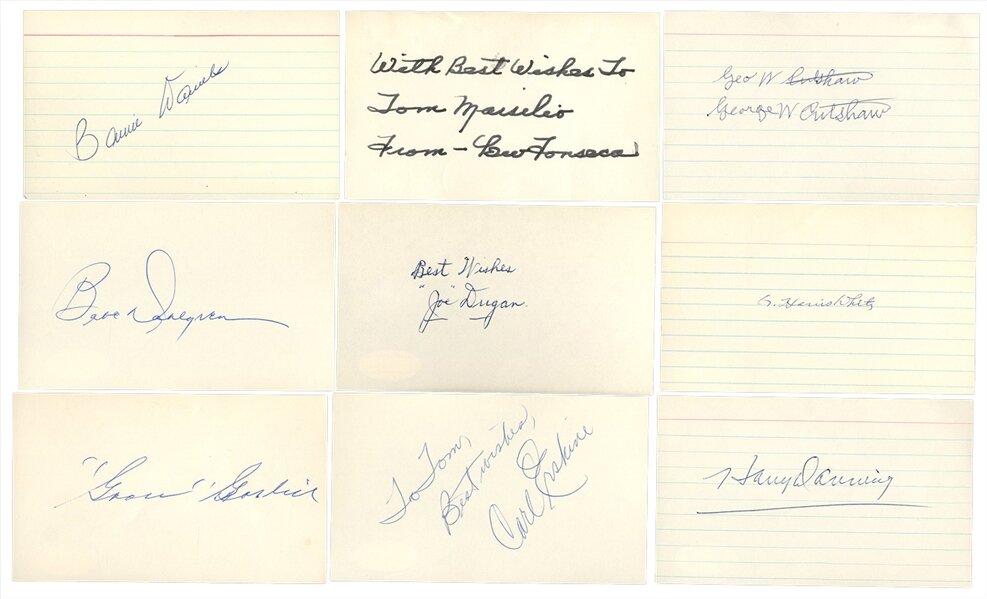 With Best Wishes To
Tom Marsilio
From - Lew Fonseca
Geo W Cutshaw
George W Cutshaw
Babe Dahlgren
Best Wishes
"Joe" Dugan.
"Goose" Goslin
To Tom,
Best wishes,
Carl Erskine
Harry Danning